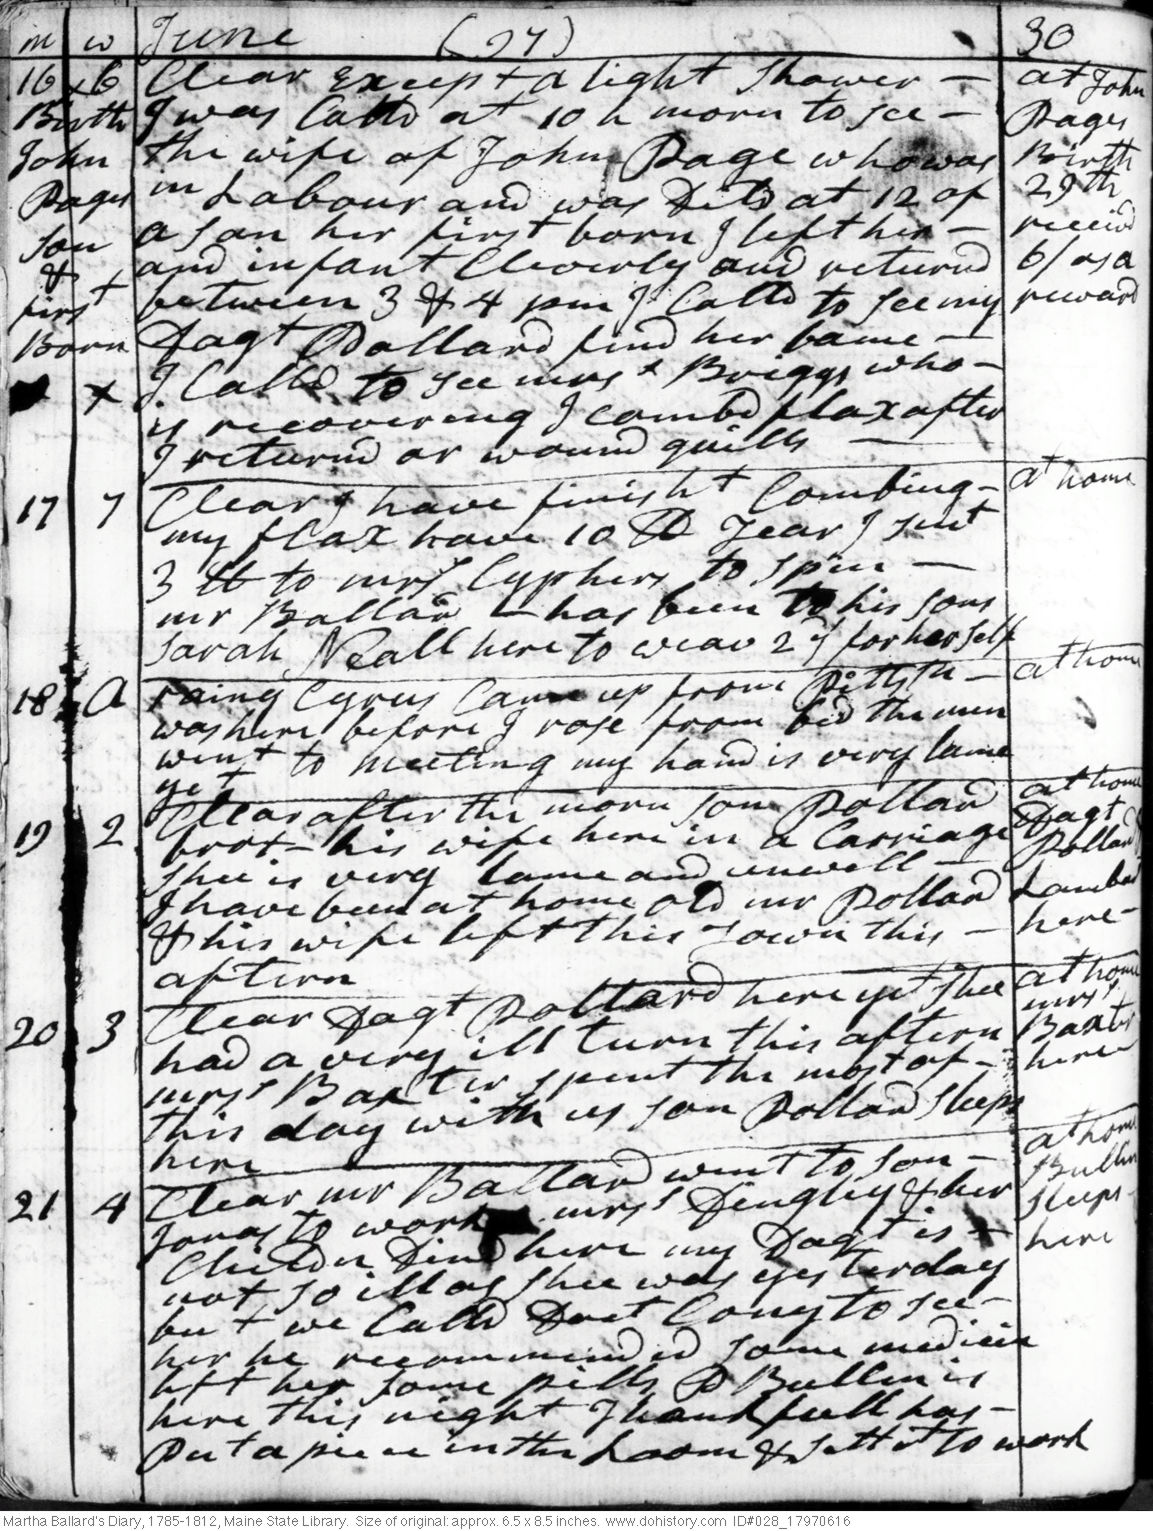 m w June (27) 30
16 x 6 Clear Except a light Shower — at John
Birth I was Calld at 10 h morn to see — Pages
John the wife of John Page who was Birth
Pages in Labour and was Deld at 12 of 29th
son a son her first born I left her — receivd
& and infant Cleverly and returnd 6/ as a
first between 3 & 4 pm I Calld to see my reward
Born Dagt Pollard find her lame —
x I Calld to see mrs Briggs who —
is recovering I combd flax after
I returnd or wound quills —
17 7 Clear I have finisht Combing — at home
my flax have 10 lb Tear I sent
3 lb to mrs Cyphers to spin —
mr Ballard — has been to his sons
Sarah Neall here to weav 2 y for her self
18 A raing Cyrus Came up from Pittstn — at home
was here before I rose from bed the men
went to meeting my hand is very lame
yet
19 2 Clear after the morn son Pollard at home
brot — his wife here in a Carriage Dagt
Shee is very lame and unwell — Pollard
I have been at home old mr Pollard Lambard
& his wife left this Town this — here —
aftern
20 3 Clear Dagt Pollard here yet Shee at home
had a very ill turn this aftern mrs
mrs Baxter spent the most of — Baxter
this day with us son Pollard Sleeps here
here
21 4 Clear mr Ballard went to son — at home
Jonas to work mrs Dingley & her Bullin
Childn Dind here my Dagt is x sleeps
not so ill as Shee was yesterday here
but we Calld Doct Cony to see —
her he recommended some medicin
left her some pills P Bullin is
here this night Hannah has —
Put a piece in the Loom & sett it to work
Martha Ballard's Diary, 1785-1812, Maine State Library. Size of original: approx. 6.5 x 8.5 inches. www.dohistory.com ID#028_17970616